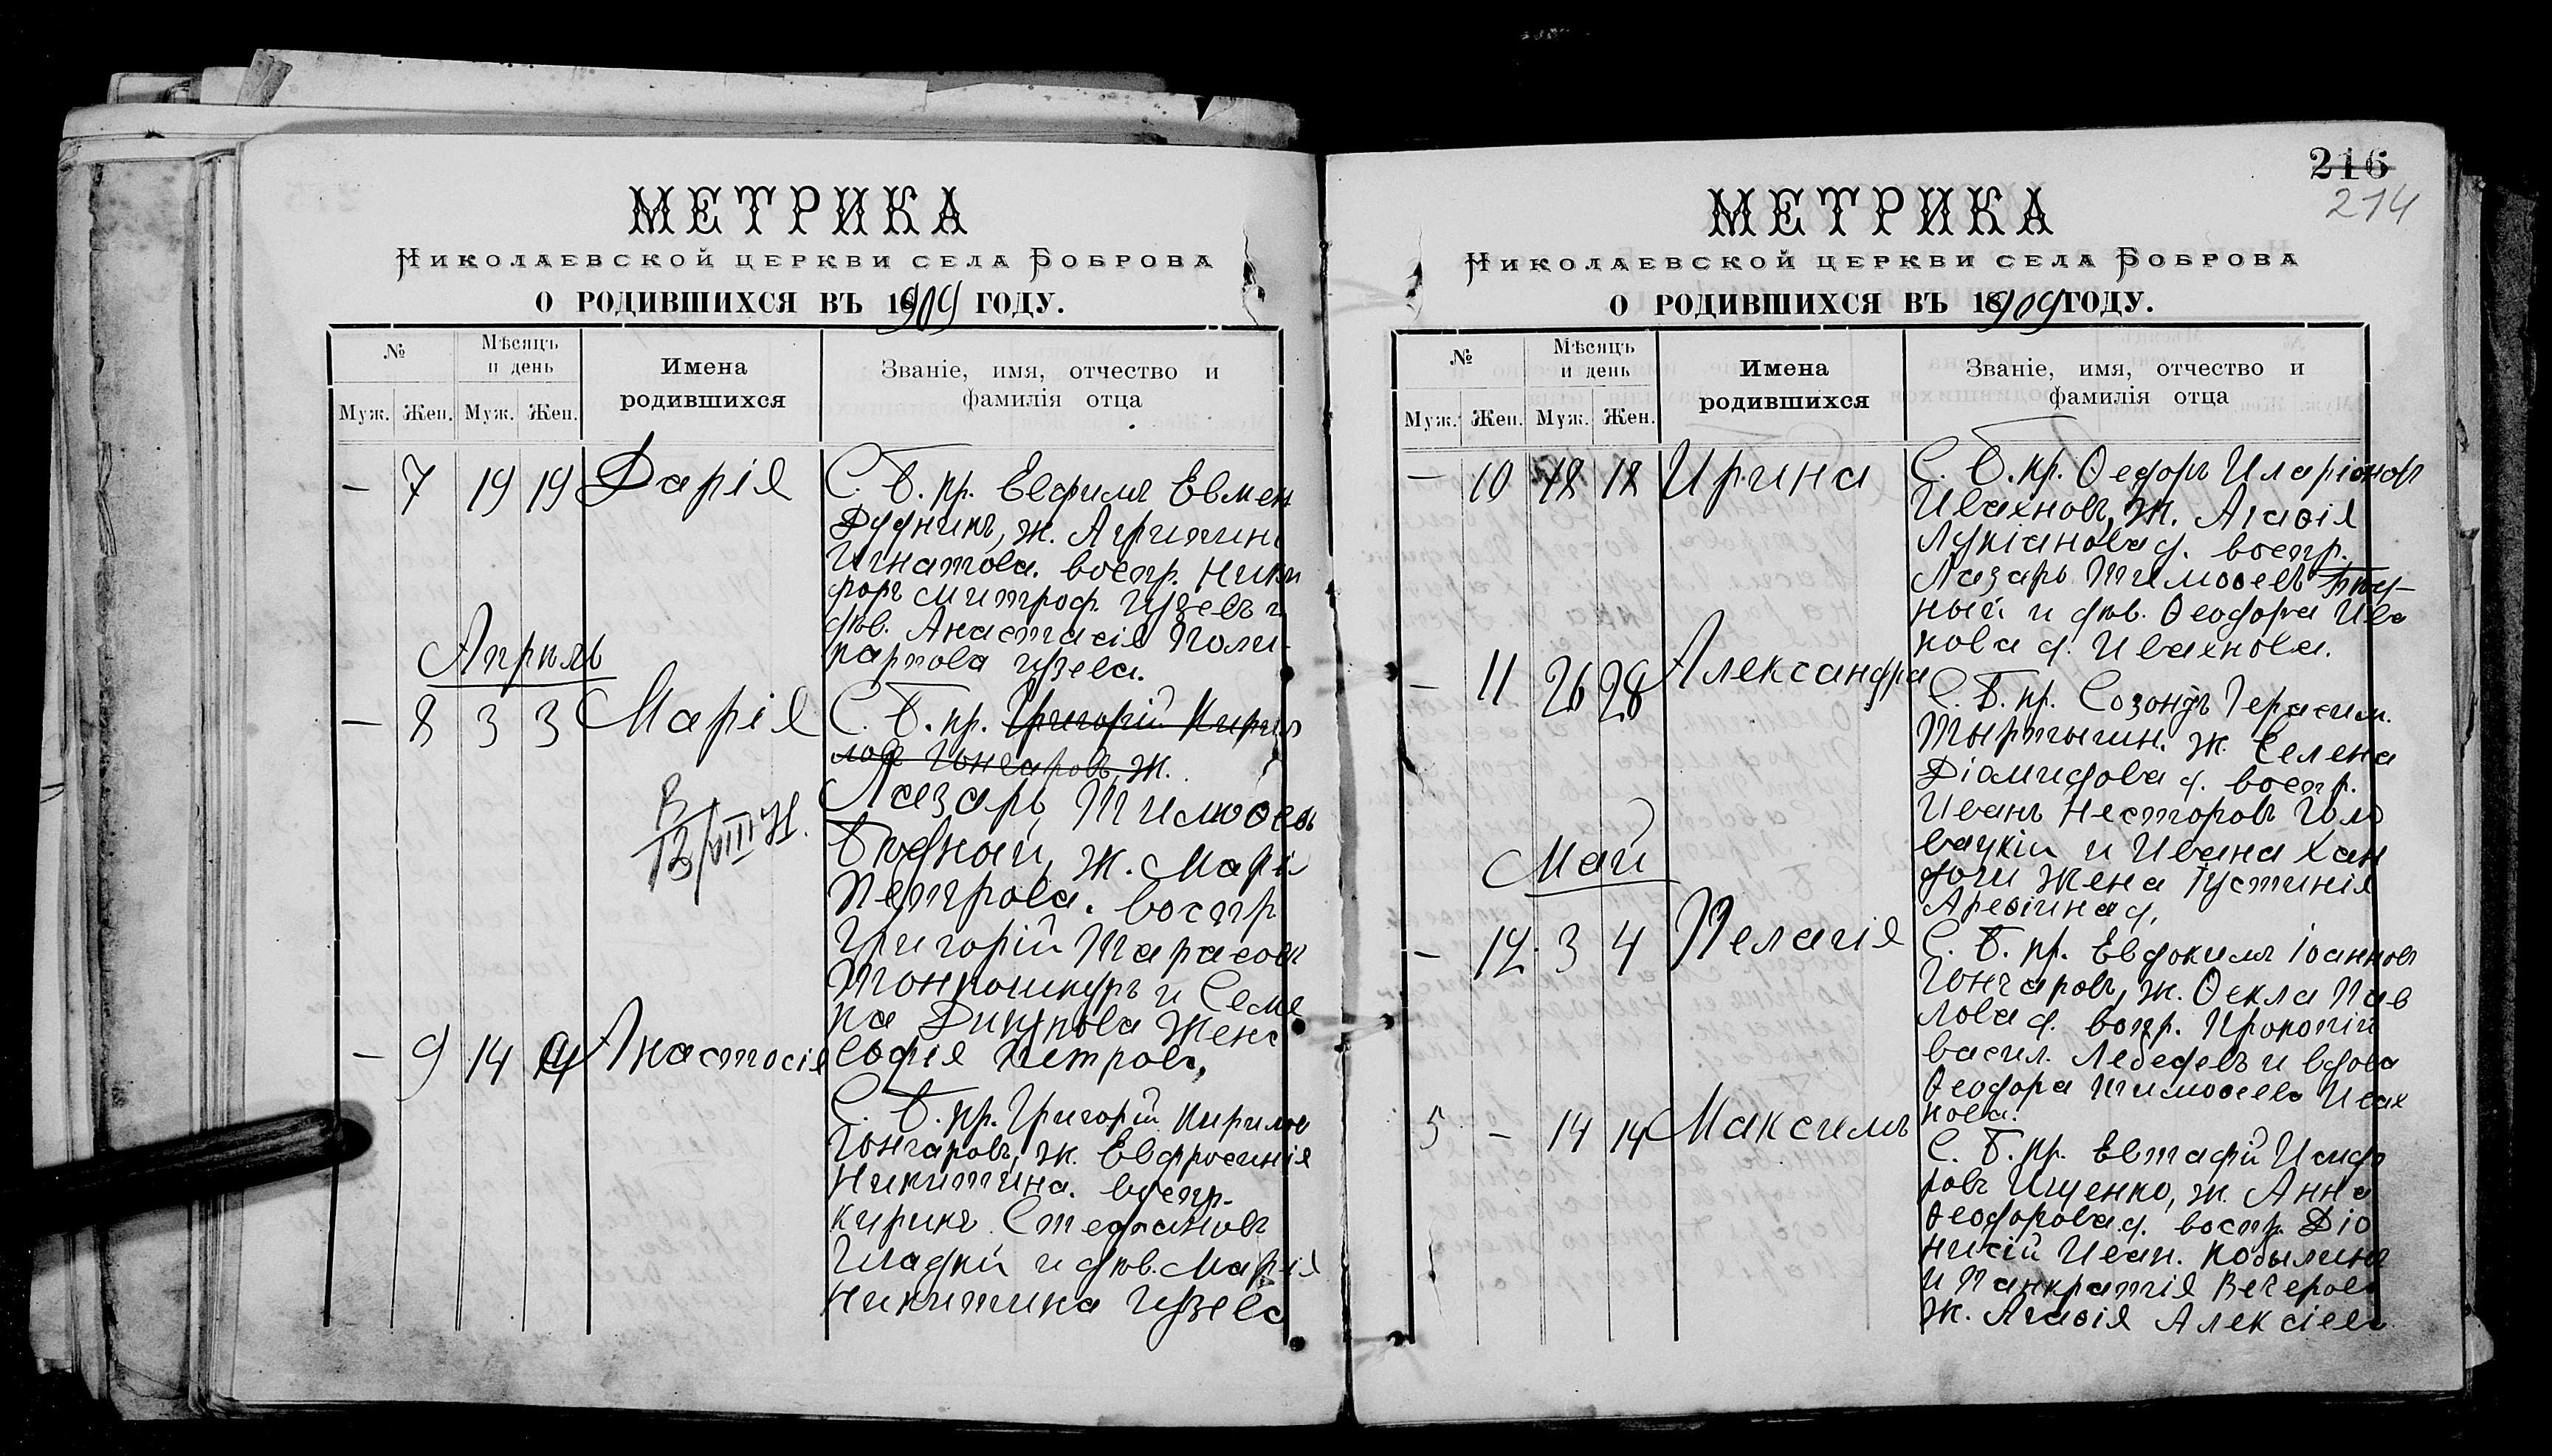 МЕТРИКА
Николаевской церкви села Боброва
О РОДИВШИХСЯ ВЪ 1909 ГОДУ.
№
Мѣсяцъ и день
Имена родившихся
Званіе, имя, отчество и фамилія отца
Муж. Жен. Муж. Жен.
– 7 19 19 Дарія
С. Б. пр. Евфимъ Евмен
Дудникъ, ж. Агрипина
Игнатова. воспр. Ники
форъ Митроф. Гузевъ и
дѣв. Анастасія Поли-
карпова Гузева.
Апрѣль
– 8 3 3 Марія
С. Б. пр. Григорій Кирил
лов Гончаровъ, ж.
Лазарь Тимоѳеев
Бѣдный, ж. Марія
Петрова. воспр
Григорій Тарасов
Тонкошкуръ и Семе
на Дикукова жена
Софія Петрова,
В
12/VIII 71.
– 9 14 14 Анастасія
С. Б. пр. Григорій Кирилов
Гончаровъ, ж. Евфросинія
Никитина. воспр.
Кирикъ Стефановъ
Гладкій и дѣв. Марія
Никитина Гузева
216
214
МЕТРИКА
Николаевской церкви села Боброва
О РОДИВШИХСЯ ВЪ 1909 ГОДУ.
№
Мѣсяцъ и день
Имена родившихся
Званіе, имя, отчество и фамилія отца
Муж. Жен. Муж. Жен.
– 10 12 12 Ирина
С. Б. пр. Ѳеодоръ Иларіонов
Ивахновъ, ж. Агаѳія
Лукіанова д. воспр.
Лазарь Тимоѳеевъ Бѣд-
ный и дѣв. Ѳеодора Ива
нова д. Ивахнова.
– 11 26 28 Александра
С. Б. пр. Созонтъ Герасим.
Тыртышн. ж. Елена
Діамидова д. воспр.
Иванъ Несторовъ Голо
вацкій и Ивана Хан
доги жена Іустинія
Ареѳина д.
Май
– 12 3 4 Пелагія
С. Б. пр. Евдокимъ Іоаннов
Гончаровъ, ж. Ѳекла Пав
лова д. вопр. Прокопій
Васил. Лебедевъ и вдова
Ѳеодора Тимоѳеева Ивах
нова.
5 – 14 14 Максимъ
С. Б. пр. Евтафій Исидо
ровъ Ищенко, ж. Анна
Ѳеодорова д. воспр. Діо
нисій Иван. Кобылинъ
и Панкратія Вечерова
ж. Агаѳія Алексіева